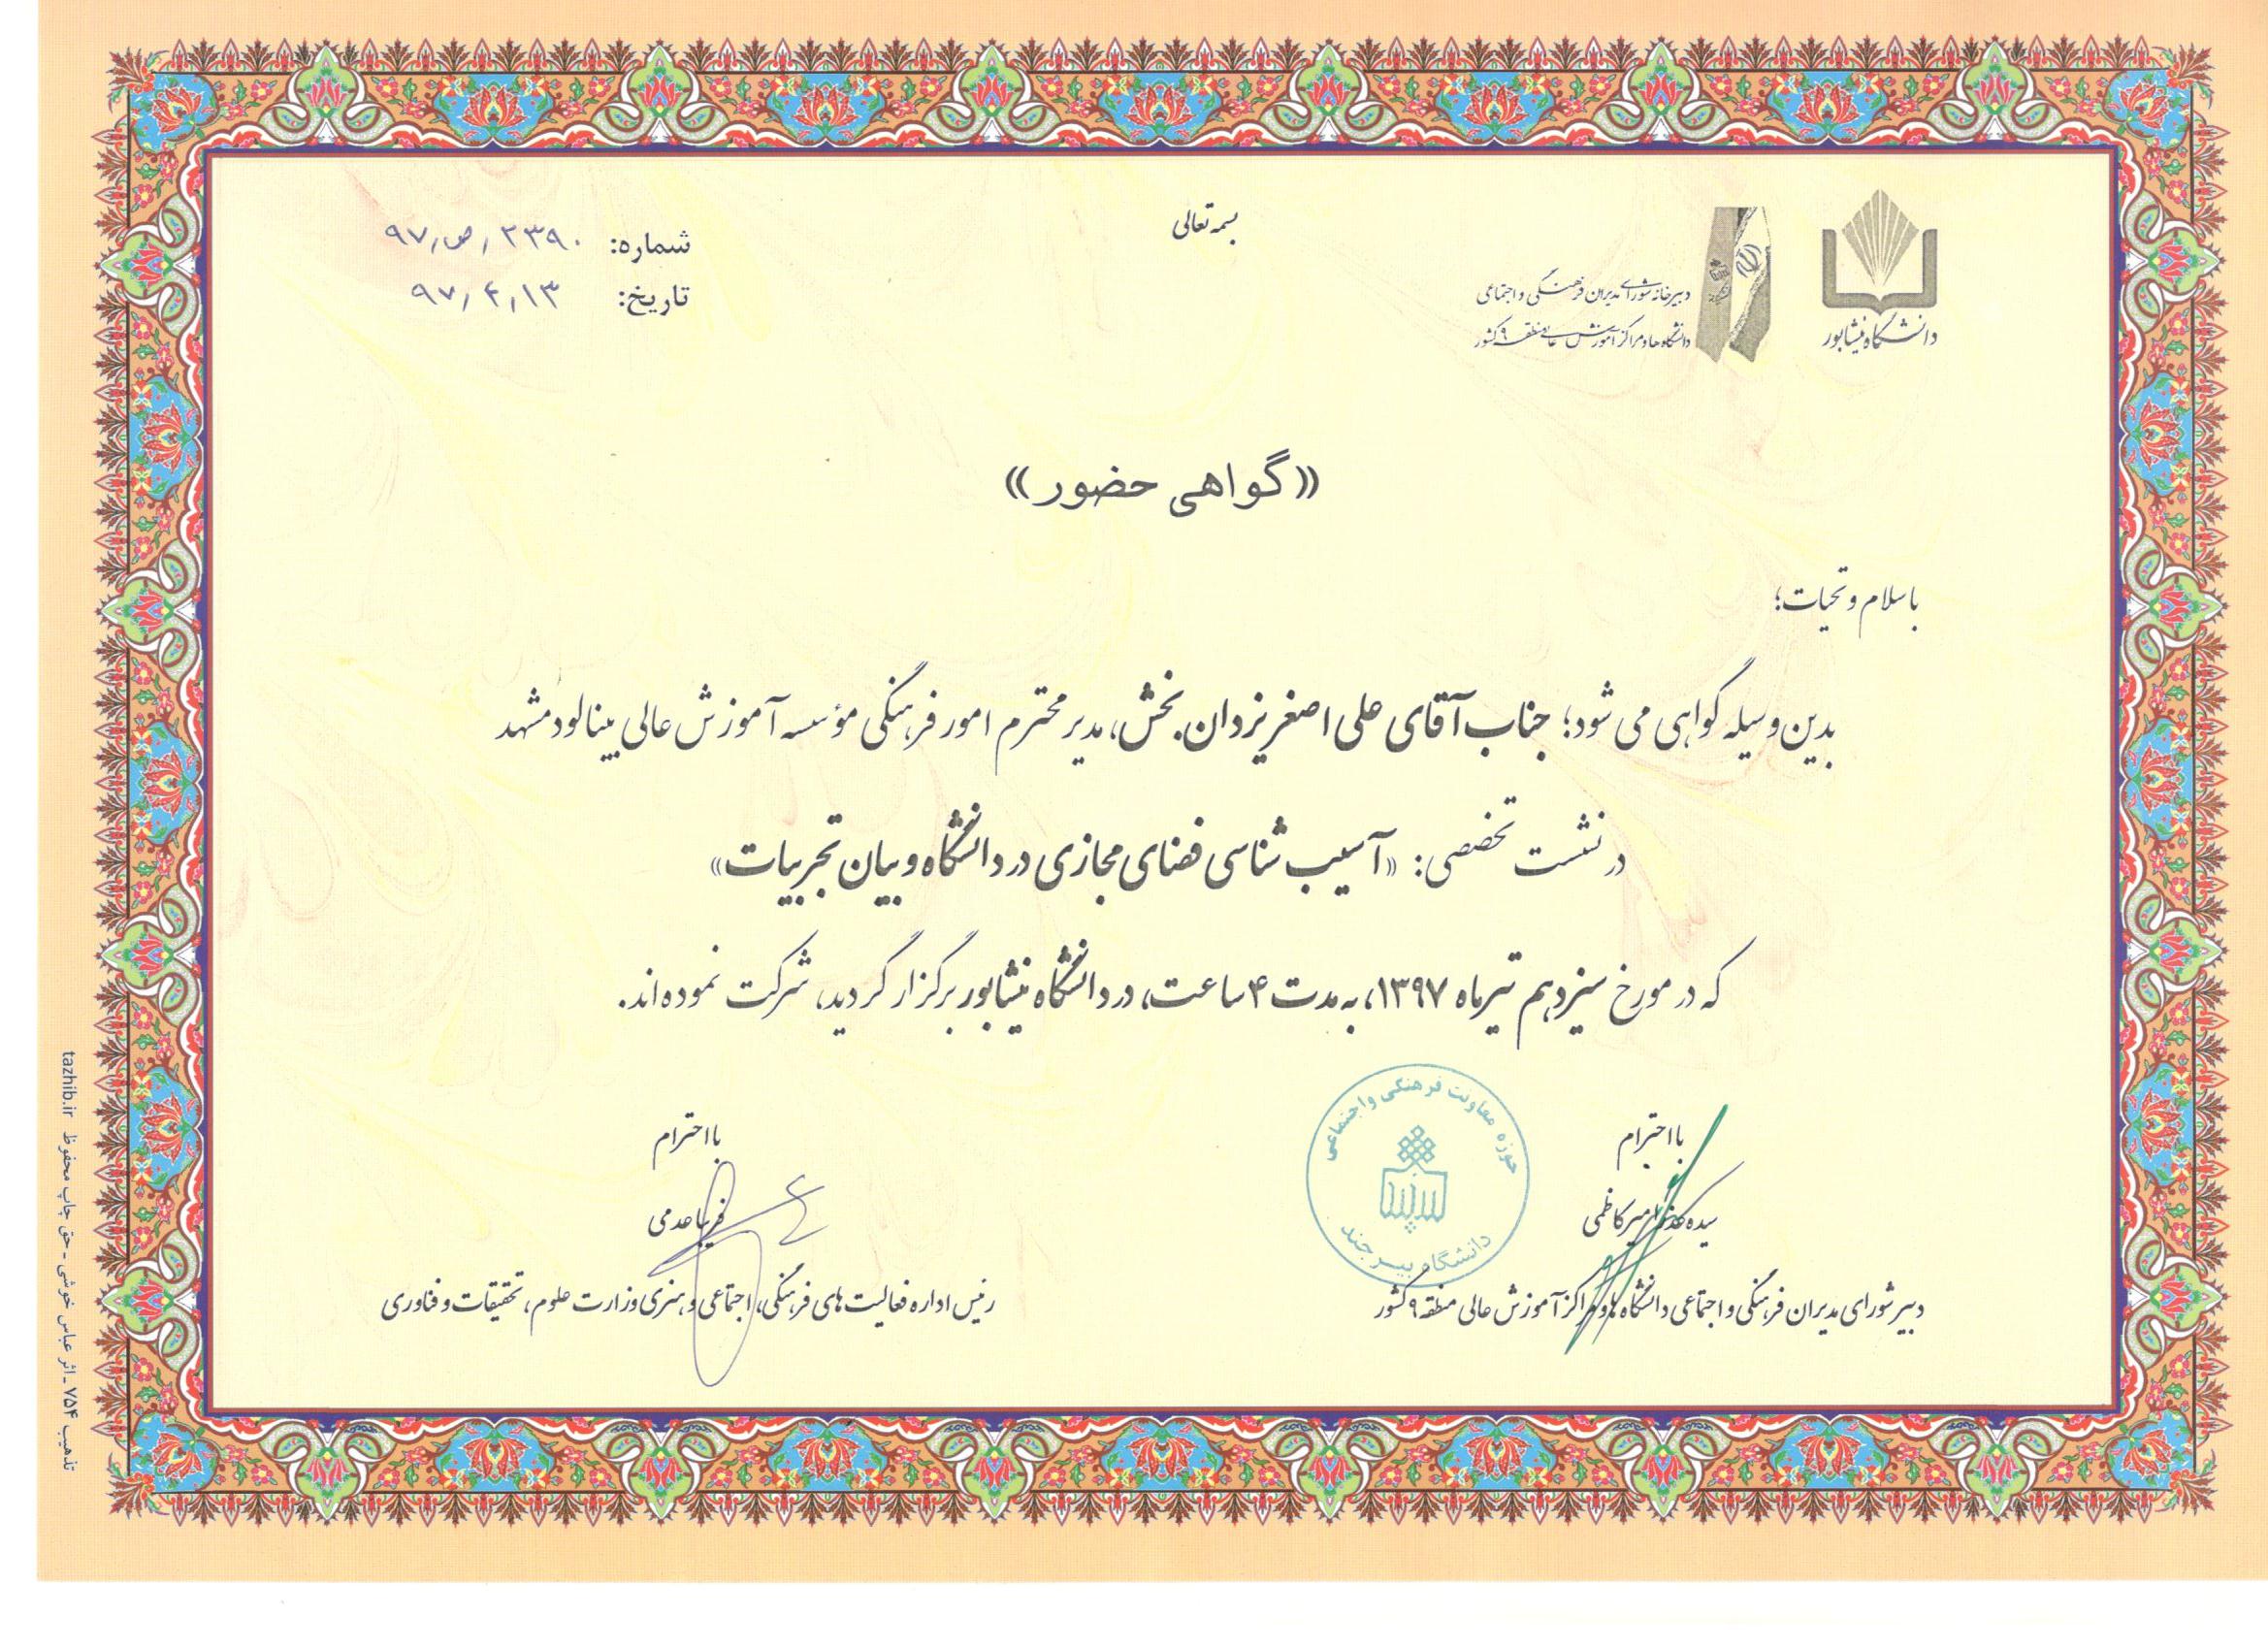 بسمه تعالی
دانشگاه نیشابور
دبیرخانه شورای مدیران فرهنگی و اجتماعی
دانشگاه ها و مراکز آموزش عالی منطقه ۹ کشور
شماره: ۲۳۹۰/ص/۹۷
تاریخ: ۹۷/۴/۱۳
«گواهی حضور»
با سلام و تحیات؛
بدین وسیله گواهی می شود؛ جناب آقای علی اصغر یزدان بخش، مدیر محترم امور فرهنگی مؤسسه آموزش عالی بینالود مشهد
در نشست تخصصی: «آسیب شناسی فضای مجازی در دانشگاه و بیان تجربیات»
که در مورخ سیزدهم تیرماه ۱۳۹۷، به مدت ۴ ساعت، در دانشگاه نیشابور برگزار گردید، شرکت نموده اند.
با احترام
سیده میرکاظمی
دبیر شورای مدیران فرهنگی و اجتماعی دانشگاه ها و مراکز آموزش عالی منطقه ۹ کشور
حوزه معاونت فرهنگی و اجتماعی
دانشگاه بیرجند
با احترام
فریبا عدمی
رئیس اداره فعالیت های فرهنگی، اجتماعی و هنری وزارت علوم، تحقیقات و فناوری
تذهیب ۷۵۴ - اثر عباس خوشی - حق چاپ محفوظ tazhib.ir